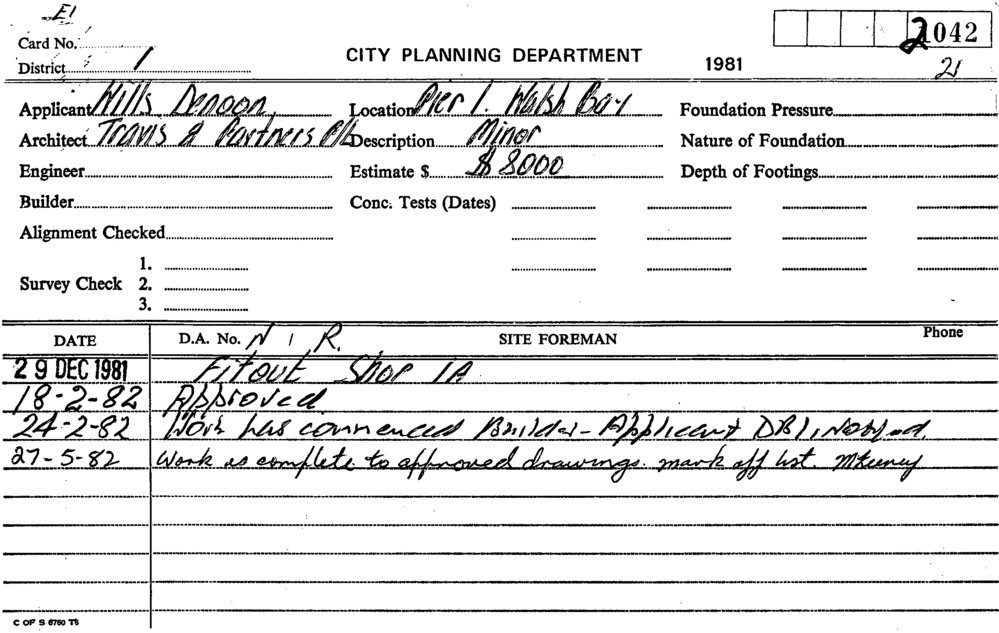 E1
Card No.
2042
CITY PLANNING DEPARTMENT 1981 21
District 1
Applicant Wills Denoon Location Pier 1. Walsh Bay Foundation Pressure
Architect Travis & Partners P/L Description Minor Nature of Foundation
Engineer Estimate $ $ 8000 Depth of Footings
Builder Conc. Tests (Dates)
Alignment Checked
1.
Survey Check 2.
3.
DATE D.A. No. N I R. SITE FOREMAN Phone
29 DEC 1981 Fitout Shop 1A
18-2-82 Approved
24-2-82 Work has commenced Builder - Applicant DBI, Notified.
27-5-82 Work is complete to approved drawings. mark off list.
C OF S 6760 T6